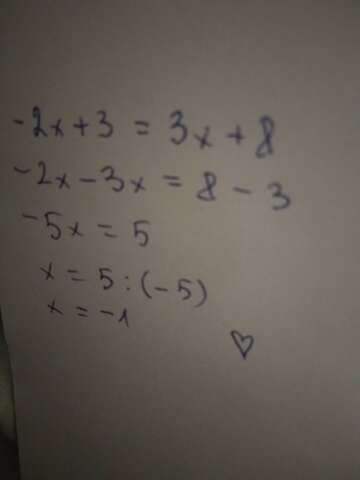 -2x+3 = 3x+8
-2x-3x = 8-3
-5x = 5
x = 5:(-5)
x = -1
♡